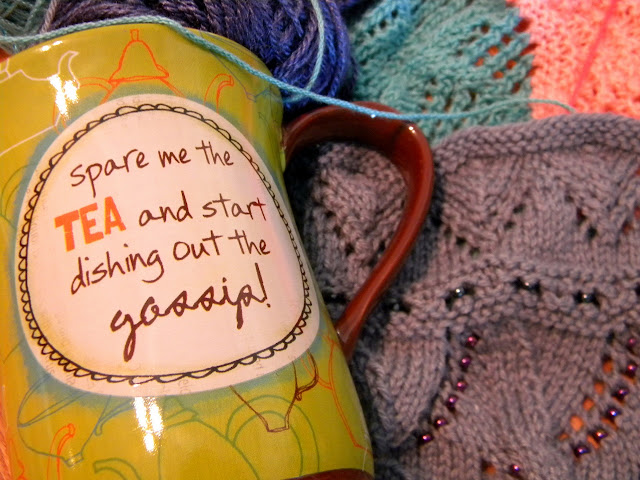 spare me the
TEA and start
dishing out the
gossip!